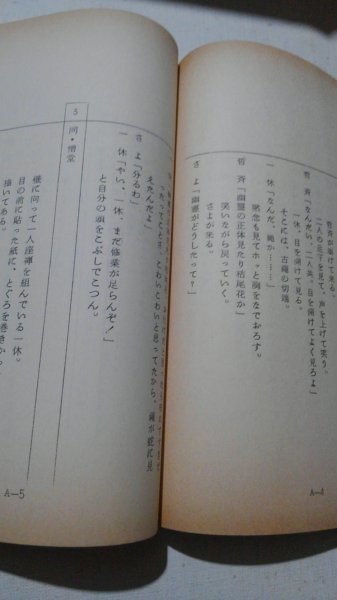 哲斉が駈けて来る。
二人の様子を見て、声を上げて笑う。
哲 斉「なんだい、二人共、目を開けてよく見ろよ」
一休、目を開けて見る。
そこには、古縄の切端。
一 休「なんだ、縄か………」
黙念も見てホッと胸をなでおろす。
哲 斉「幽霊の正体見たり枯尾花か」
笑いながら戻っていく。
さよが来る。
さ よ「幽霊がどうしたって？」
A—4
ったってことさ。こわいこわいと思ってたから、縄が蛇に見
えたんだよ」
さ よ「分るわ」
一 休「やい、一休、まだ修業が足らんぞ！」
と自分の頭をこぶしでこつん。
5 同・僧堂
壁に向って一人座禅を組んでいる一休。
目の前に貼った紙に、とぐろを巻きかっ
描いてある。
A—5